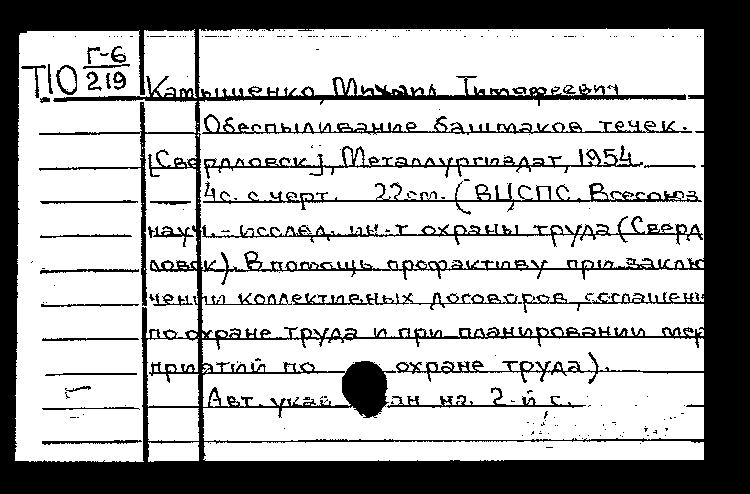 Т10 Г-6
219
Камышенко, Михаил Тимофеевич
Обеспыливание башмаков течек.
[Свердловск], Металлургиздат, 1954.
4с. с черт. 22см. (ВЦСПС. Всесоюз
науч.-исслед. ин-т охраны труда (Сверд
ловск). В помощь профактиву при заклю
чении коллективных договоров, соглашени
по охране труда и при планировании мер
приятий по охране труда).
Авт. указан на 2-й с.